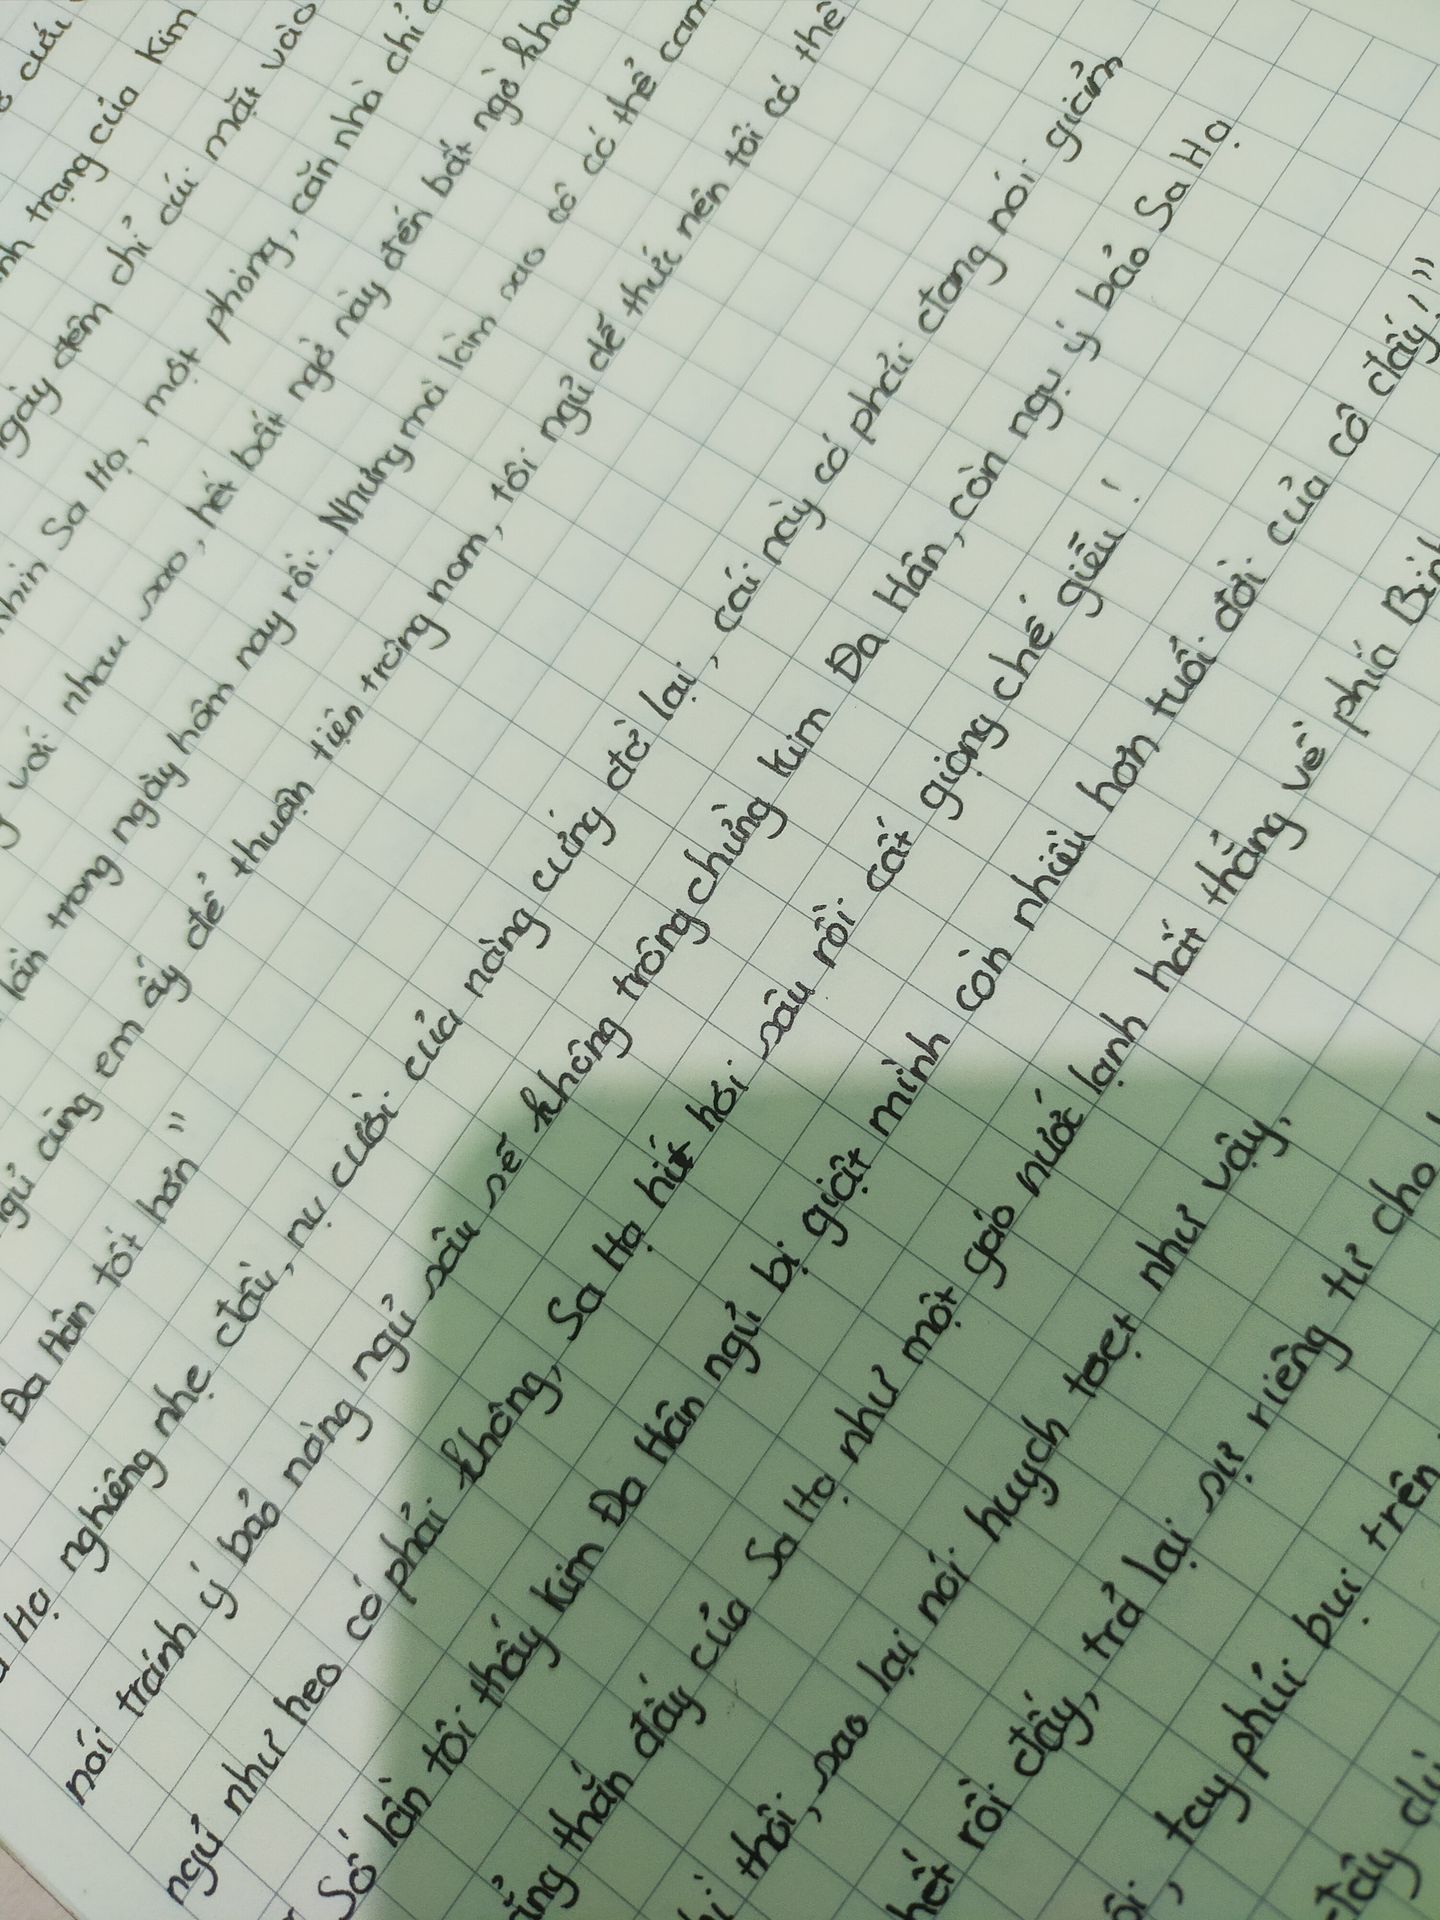 cứu
trạng của Kim
ngày đêm chỉ cúi mặt vào
nhìn Sa Hạ, một phòng, căn nhà chỉ
với nhau sao, hết bất ngờ này đến bất ngờ
lần trong ngày hôm nay rồi. Nhưng mà làm sao cô có thể
ngủ cùng em ấy để thuận tiện trông nom, tôi ngủ dễ thức nên tôi có thể
Đa Hân tốt hơn"
Hạ nghiêng nhẹ đầu, nụ cười của nàng cứng đờ lại, cái này có phải đang nói giảm
nói tránh ý bảo nàng ngủ sâu sẽ không trông chừng Kim Đa Hân, còn ngụ ý bảo Sa Hạ
ngủ như heo có phải không, Sa Hạ hít hơi sâu rồi cất giọng chế giễu!
Số lần tôi thấy Kim Đa Hân ngủ bị giật mình còn nhiều hơn tuổi đời của cô đấy!"
thắn đấy của Sa Hạ như một gáo nước lạnh hất thẳng về phía
thôi, sao lại nói huỵch toẹt như vậy,
hết rồi đấy, trả lại sự riêng tư cho
, tay phủi bụi trên